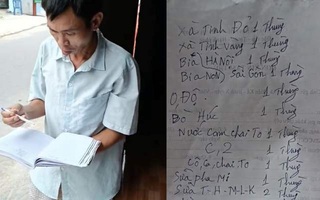 Xà Tinh Đỏ 1 Thùng
Xà Tinh vàng 1 Thùng
Bia HÀ Nội 1 Thùng
Bia Non Sài Gòn 1 Thùng
O, ĐỘ
Bò Húc 1 Thùng
Nước Cam chai To 1 Thùng
C, 2 1 Thùng
Cô, Ca, chai To 1 Thùng
Sữa pha Mi 1 Thùng
Sữa T-H-M-L-K 2 Thùng